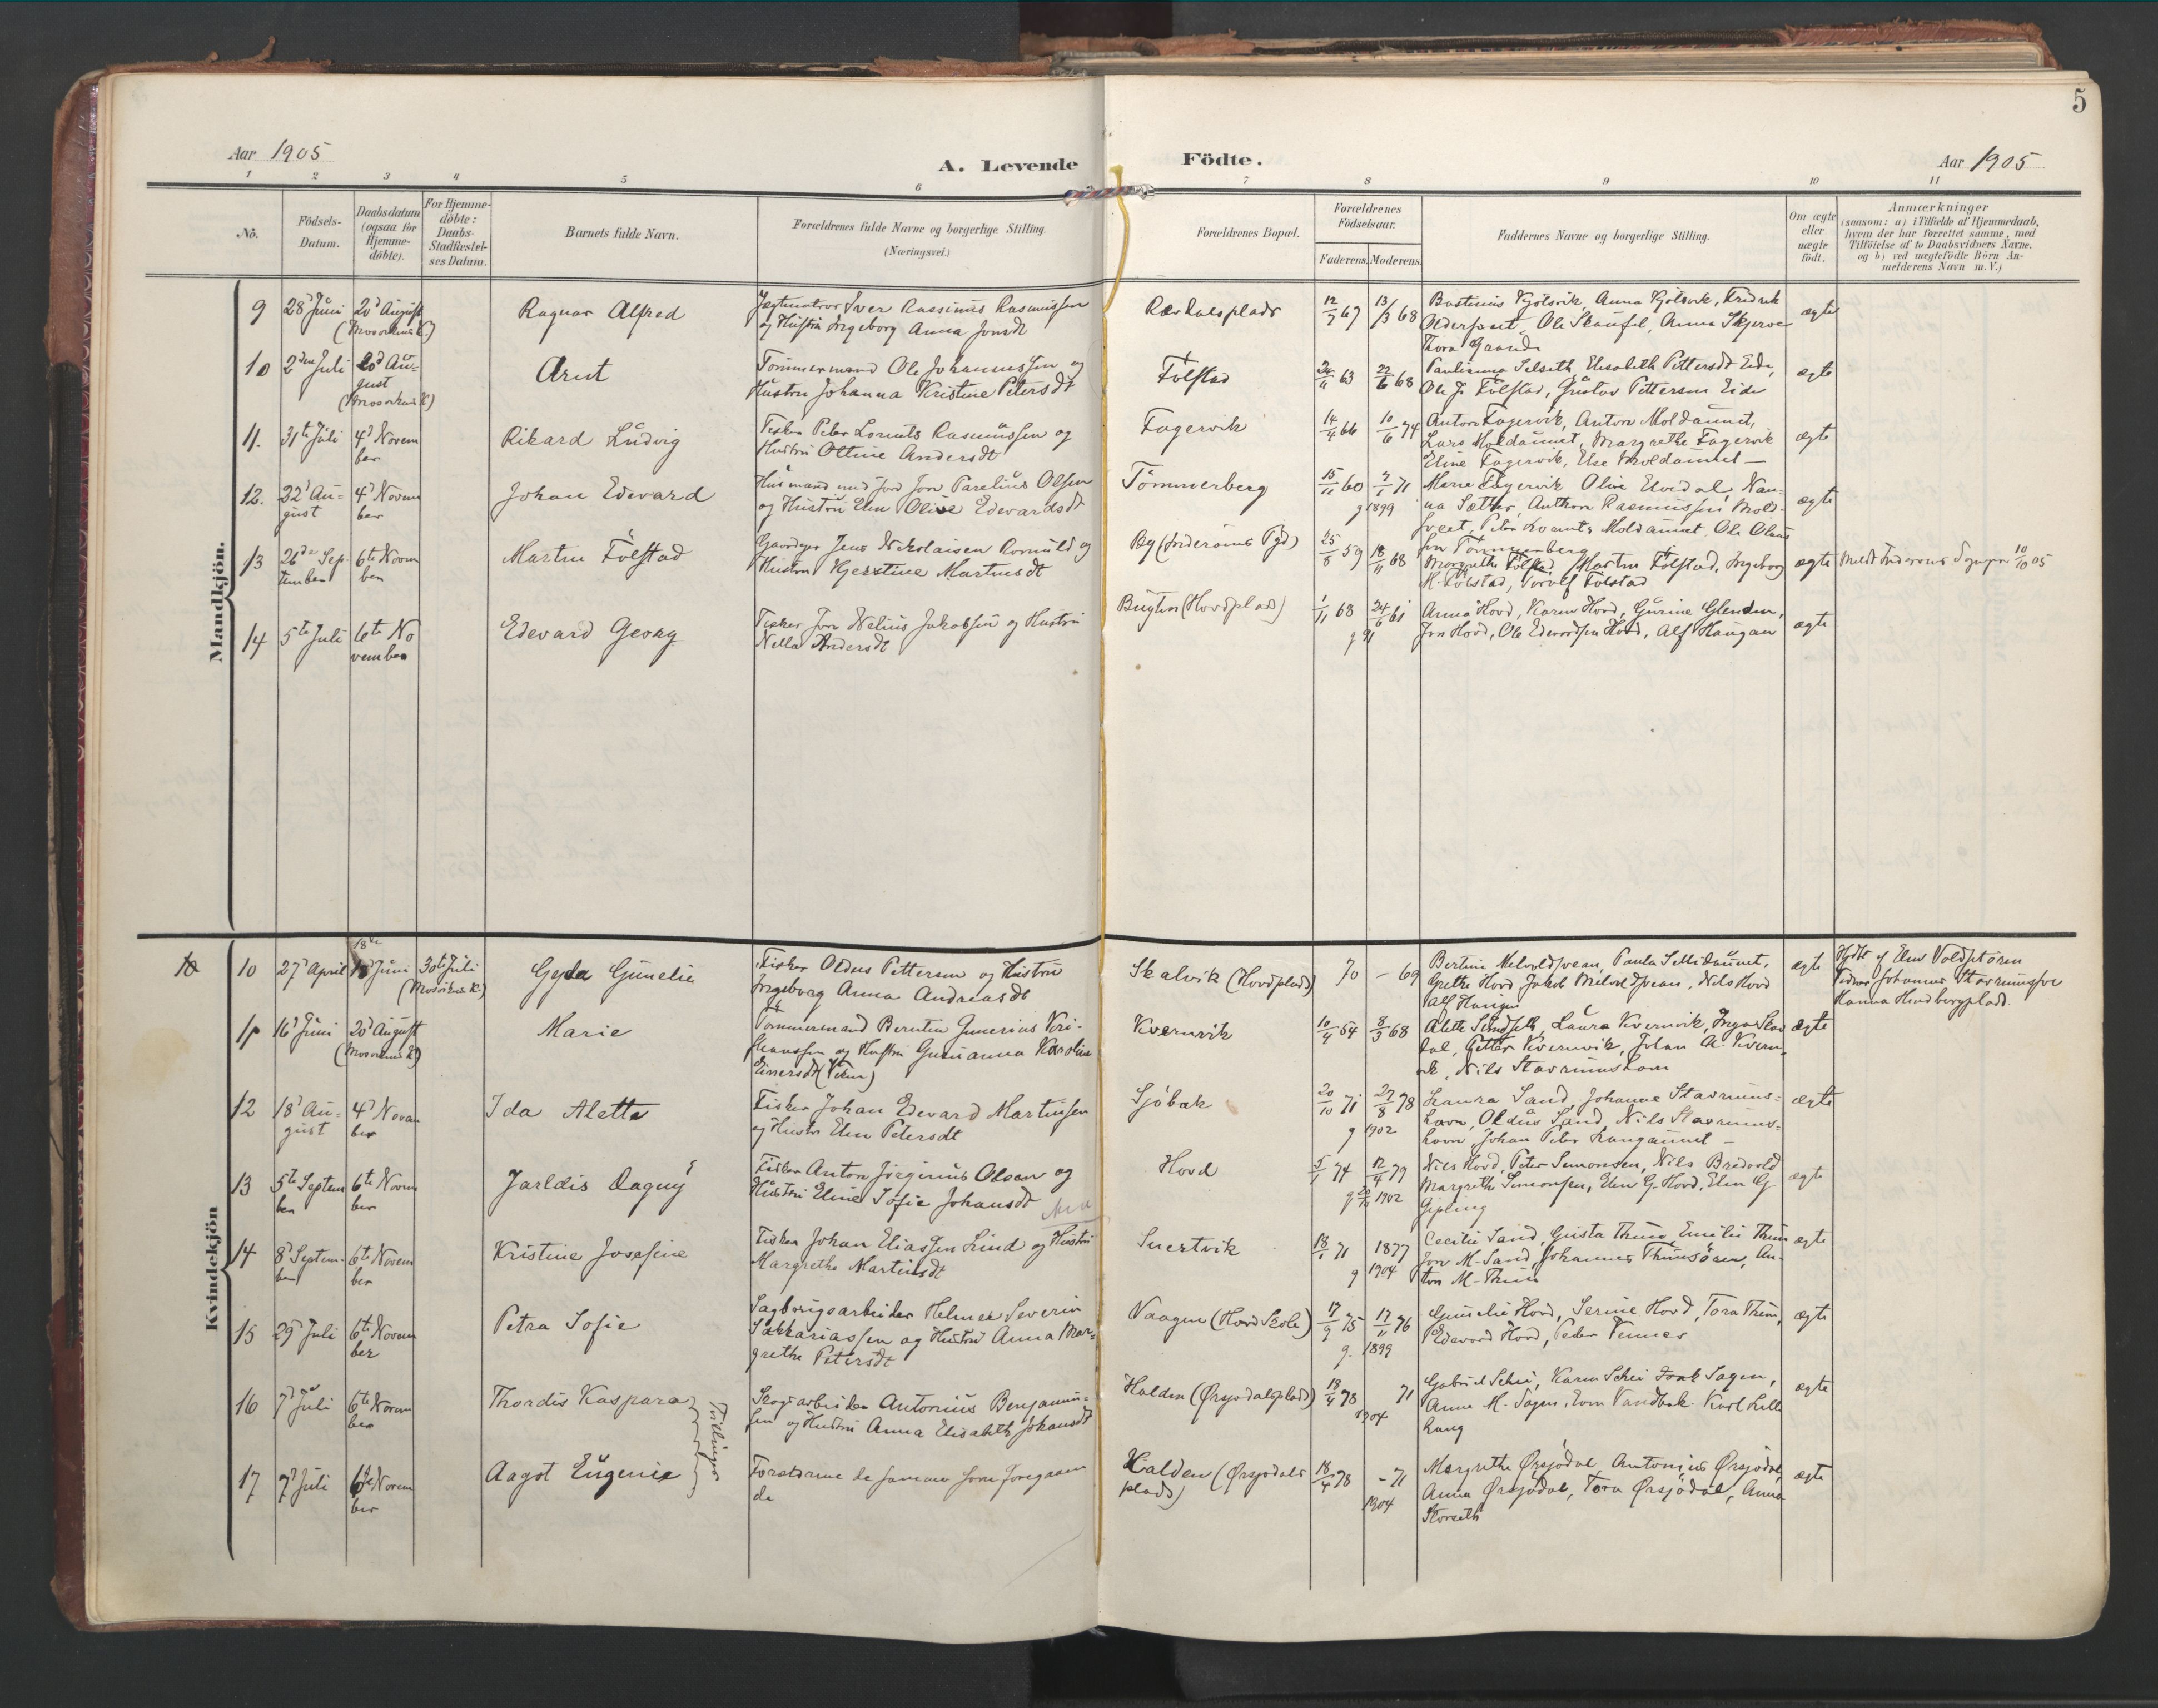 5
Aar 1905
A. Levende Födte.
Aar 1905
1 2 3 4 5 6 7 8 9 10 11
No.
Födsels-
Datum.
Daabsdatum
(ogsaa for
Hjemme-
döbte).
For Hjemme-
döbte:
Daabs-
Stadfæstel-
ses Datum.
Barnets fulde Navn.
Forældrenes fulde Navne og borgerlige Stilling.
(Næringsvei.)
Forældrenes Bopæl.
Forældrenes
Födselsaar.
Faderens. Moderens.
Faddernes Navne og borgerlige Stilling.
Om ægte
eller
uægte
födt.
Anmærkninger
(saasom: a) i Tilfælde af Hjemmedaab,
hvem der har forrettet samme, med
Tilföielse af to Daabsvidners Navne.
og b) ved uægtefödte Börn An-
melderens Navn m. V.)
Mandkjön.
9 28d Juni 20d August
Ragnar Alfred
Iver Rasmus Rasmussen
og Hustru Ingeborg Anna Jonsdt
12/7 67 13/3 68
Anna Fridrik
Ole Anna
Thora
ægte
10 2den Juli 20d Au-
gust
Arnt
Tömmermand Ole Johannessen og
Hustru Johanna Kristine Petersdt
Fölstad
24/11 63 22/6 68
Selseth, Elisabeth Pettersdt Eide,
Ole J. Fölstad, Gustav Pettersen Eide
ægte
11. 31te Juli 4d Novem
ber
Rikard Ludvig
Fisker Peter Lorents Rasmussen og
Hustru Oline Andersdt
Fagervik
14/4 66 10/6 74
Anton Fagervik, Anton Moldaunet,
Lars Moldaunet, Margrethe Fagervik
Eline Fagervik, Else Moldaunet —
ægte
12. 22d Au-
gust
4d Novem
ber
Johan Edevard
Husmand med Jord Jon Parelius Olsen
og Hustru Elen Olise Edevardsdt
Tömmerberg
15/11 60 7/1 71
g 1899
Marie Fagervik Oline Nan-
na Sæther, Anthon Rasmussen
Peter Lorents Moldaunet, Ole
Tömmerberg
ægte
13 26de Sep-
tember
6te Novem
ber
Martin Fölstad
Gaardejer Jens Nikolaisen og
Hustru Martinusdt
By (Inderöens Pgd)
25/8 59 18/11 68
Margrethe Fölstad, Martin Fölstad, Ingeborg
M. Fölstad, Torolf Fölstad
ægte
Meldt Inderöens Sognepr. 10/10 05
14 5te Juli 6te No
vember
Edevard Georg
Fisker Jon Nelius Jakobsen og Hustru
Nella Andersdt
Bugten (Hovdplads)
1/11 68 24/6 61
g 91
Anna Hovd, Karen Hovd, Gurine
Jon Hovd, Ole Edevardsen Hovd, Alf Haugan
ægte
Kvindekjön
10 10 27d April 18de Juni 30te Juli
Gyda Gunelie
Fisker Oldus Pettersen og Hustru
Ingeborg Anna Andreasdt
Skalvik (Hovdplads)
70 – 69
Bertine Paula
Grethe Hovd Jakob Nils Hovd
Alf Haugen
ægte
Hjdbt af Elen
Johannes
Hanna
11 16d Juni 20d August
Marie
Tömmermand Berntin Gunerius Kri-
stianssen og Hustru Gurianna Karoline
Einersdt
Kvernvik
10/4 54 8/3 68
Alette Laura Kvernvik, Inga
dal, Petter Kvernvik, Johan A. Kvern-
vik, Nils
ægte
12 18d Au-
gust
4d Novem
ber
Ida Alette
Fisker Johan Edevard Martinsen
og Hustru Elen Petersdt
Sjöbak
20/10 71 27/8 78
g 1902
Laura Sand, Johanne Stavrums-
havn, Oldus Sand, Nils Stavrums-
havn, Johan Peter Langaunet –
ægte
13 5te Septem
ber
6te Novem
ber
Jarldis Dagny
Fisker Anton Jörginus Olsen og
Hustru Eline Sofie Johansdt
Hovd
5/1 74 12/4 79
1902
Nils Hovd, Peter Simonsen, Nils Bredvold
Margrethe Simonsen, Elen G. Hovd, Elen G
Gipling
ægte
14 8d Septem-
ber
6te Novem
ber
Kristine Josefine
Fisker Johan Eliassen Lund og Hustru
Margrethe Martinsdt
Suertvik
18/1 71 1877
g 1904
Cecilie Sand, Gusta Thun, Emilie Thun
Jon M. Sand, Johannes An-
ton M. Thun
ægte
15 29d Juli 6te Novem
ber
Petra Sofie
Sagbrugsarbeider Helmer Severin
Sakkariassen og Hustru Anna Mar-
grethe Petersdt
Vaagen (Hovd Skole)
17/9 75 17/11 76
g. 1899
Gunelie Hovd, Serine Hovd, Tora Thun,
Edevard Hovd, Peder Vennes
ægte
16 7d Juli 6te Novem
ber
Thordis Kaspara
Tvillinger
Skogsarbeider Antonius Benjamin-
sen og Hustru Anna Elisabeth Johansdt
Halden (Ørsjödalsplads)
18/4 78 71
1904
Gabriel Schei, Karen Schei Sagen,
Anne M. Sagen, Karl Lille
haug
ægte
17 7d Juli 6te Novem
ber
Aagot Eugenie
Foreldrene de samme som foregaaen
de
Halden (Ørsjödals
plads)
18/4 78 – 71
1904
Margrethe Ørsjödal, Antonius Ørsjödal,
Anna Ørsjödal, Tora Ørsjödal, Anna
Storseth
ægte